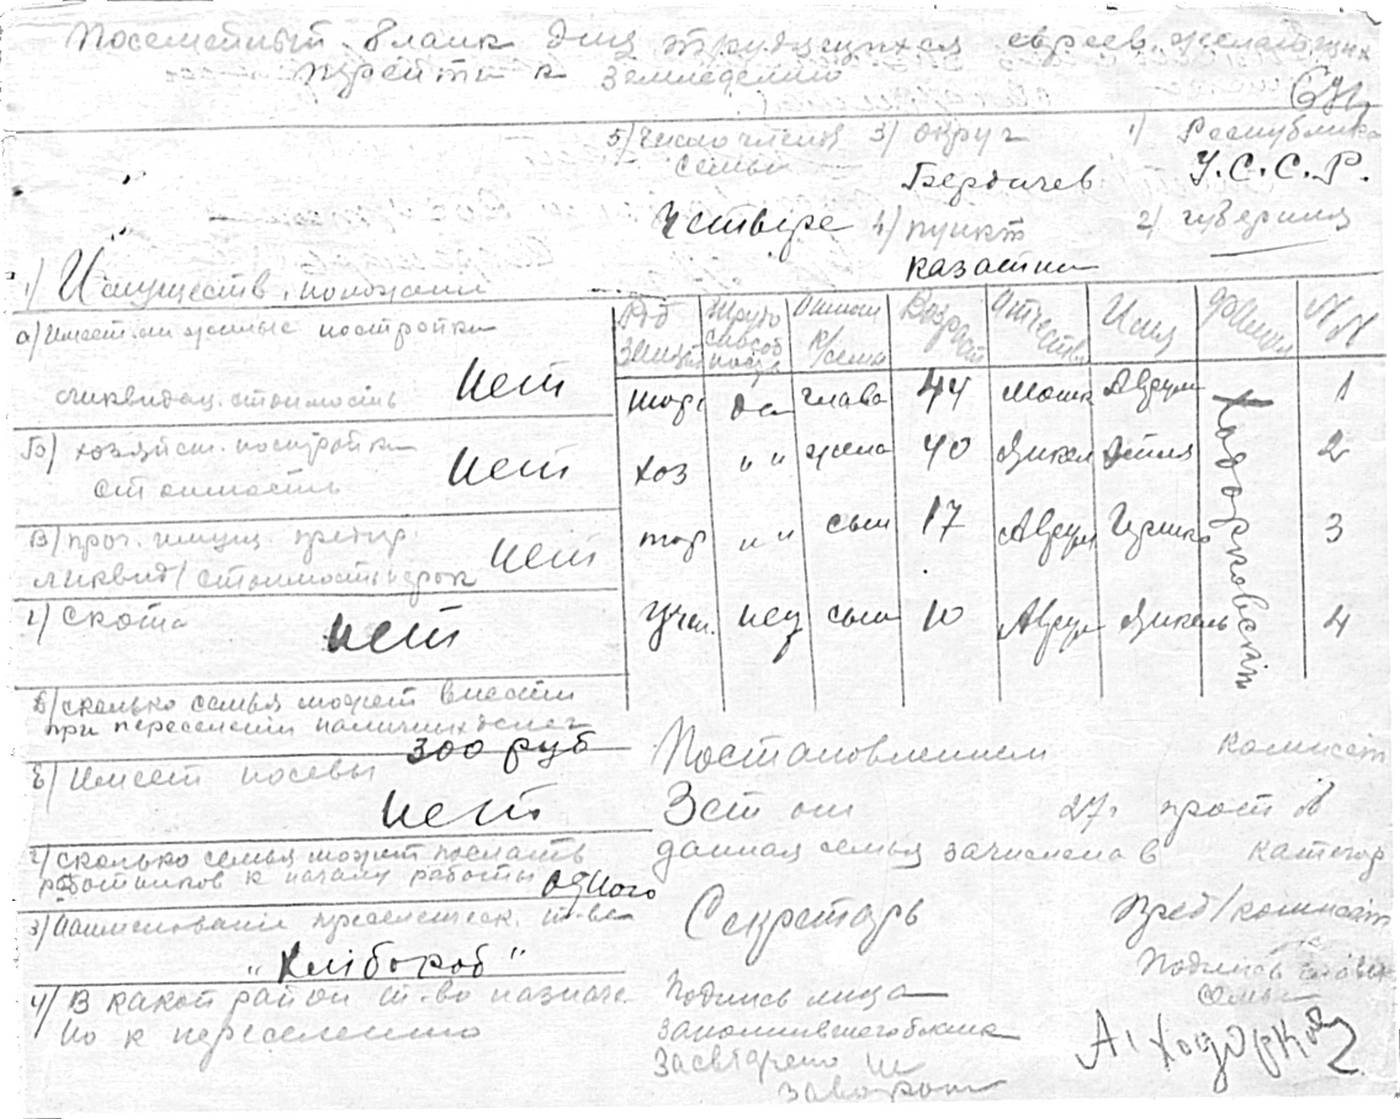 Посемейный бланк для трудящихся евреев, желающих
перейти к земледелию
1) Республика
У.С.С.Р.
2) губерния
3) округ
Бердичев
4) пункт
Казатин
5) Число членов
семьи
Четверо
NN Фамил Имя Отчество Возраст Отнош к/семье Трудо способ ность Род занят
Ходорковский
1 Аврум Мошк 44 глава да торг
2 Эйкел 40 жена " " хоз
3 Гершко Аврум 17 сын " " тор
4 Эйкель Аврум 10 сын нет учен.
1) Имуществ. положени
а) Имеет ли жилые постройки
ликвидац. стоимость
нет
Б) хозяйст. постройки
стоимость
нет
В) проч. имущ. предпр.
ликвид/стоимость
нет
г) Скота
нет
д) сколько семья может внести
при переселении наличных денег
300 руб
е) Имеет посевы
нет
2) сколько семья может послать
работников к началу работы одного
3) Наименование переселенческ. т-ва
"Хлібороб"
4) В какой район т-во назначе
но к переселению
Постановлением комисет
Зст от 27 г прот №
данная семья зачислена в категор
Секретарь
Пред/комисет
Подпись главы
семьи
А. Ходорков
Подпись лица
заполнившего бланк
Засвідчено на
звороті